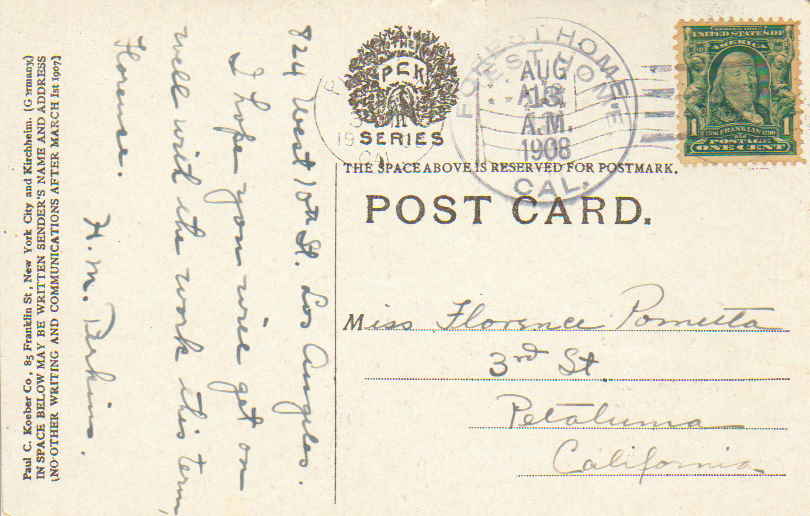 Paul C. Koeber Co, 85 Franklin St, New York City and Kirchheim. (Germany)
IN SPACE BELOW MAY BE WRITTEN SENDER'S NAME AND ADDRESS
(NO OTHER WRITING AND COMMUNICATIONS AFTER MARCH 1st 1907)
824 West 10th St. Los Angeles.
I hope you will get on
well with the work this term,
Florence.
H. M. Perkins.
PCK
SERIES
FOREST HOME
AUG
A.M.
1908
CAL.
UNITED STATES OF
AMERICA
1 FRANKLIN 1
POSTAGE
ONE CENT
THE SPACE ABOVE IS RESERVED FOR POSTMARK.
POST CARD.
Miss Florence Pometta
3rd St
Petaluma
California